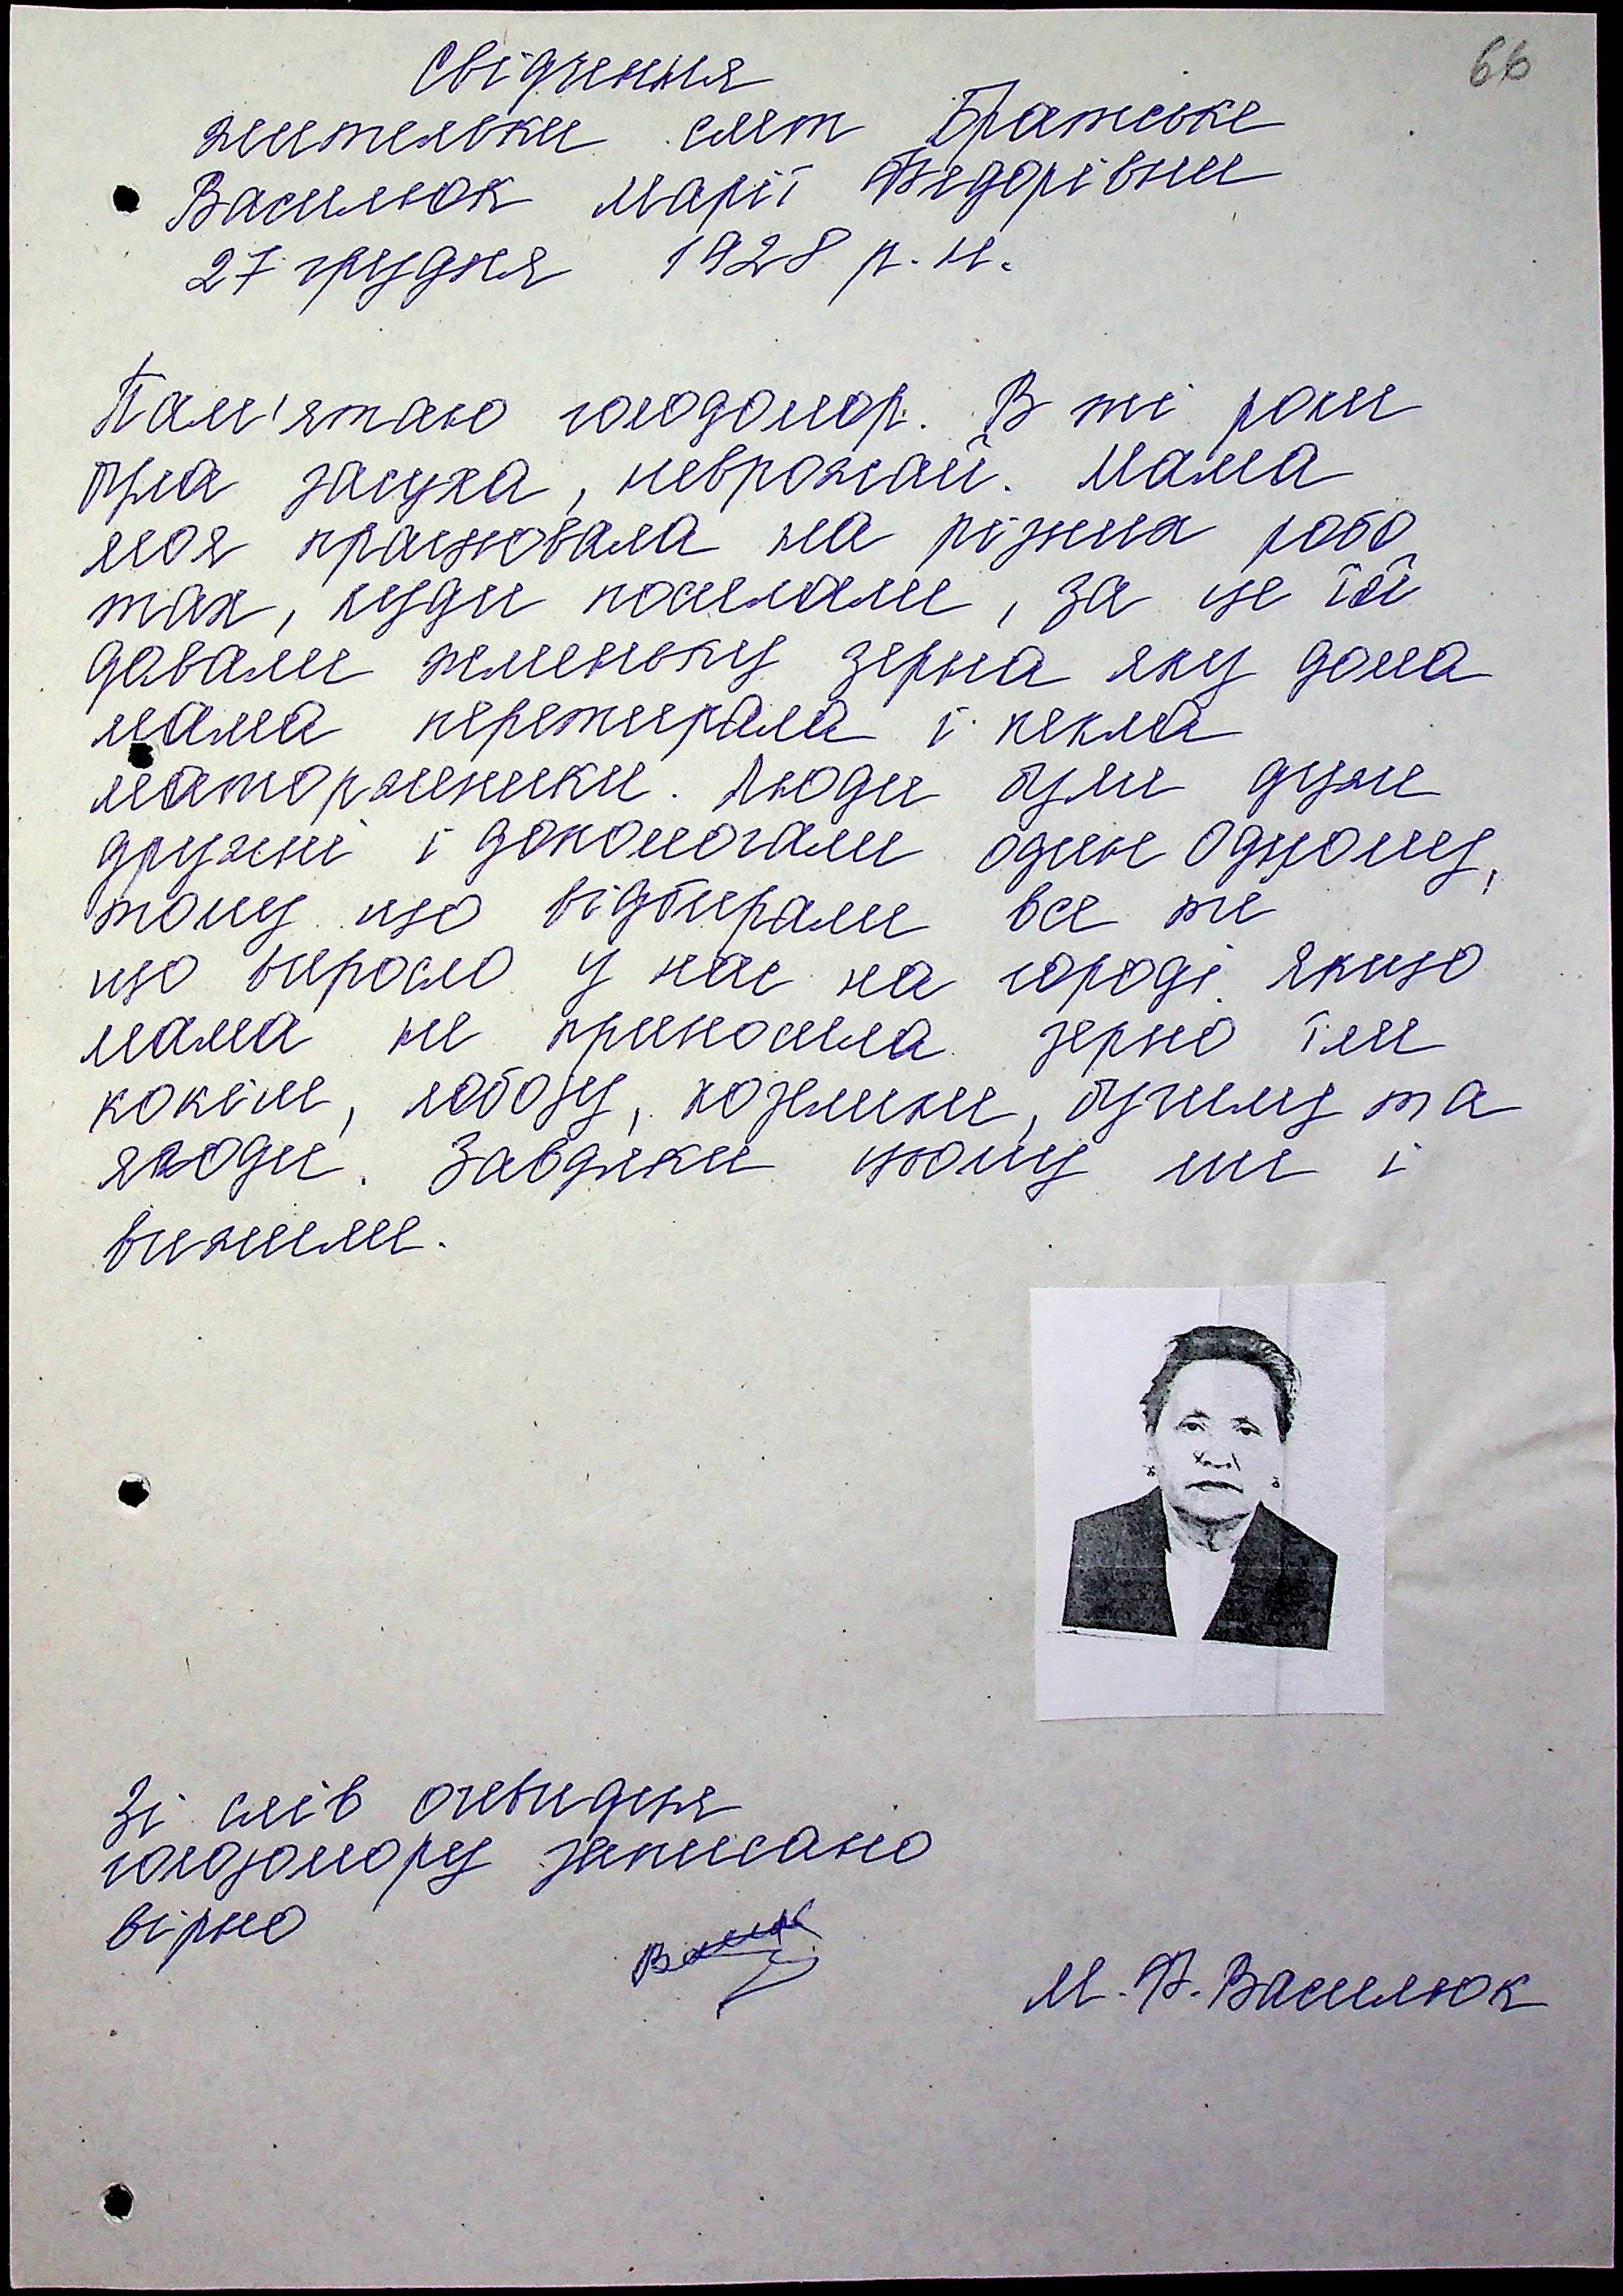 66
Свідчення
жительки смт Братське
Василюк Марії Федорівни
27 грудня 1928 р. н.
Пам'ятаю голодомор. В ті роки
була засуха, неврожай. Мама
моя працювала на різних робо
тах, куди посилали, за це їй
давали жменьку зерна яку дома
мама перетирала і пекла
маторженики. Люди були дуже
дружні і допомогали один одному,
тому що відбирали все те
що виросло у нас на городі. Якщо
мама не приносила зерно їли
кокіли, лободу, козелики, бучилу та
ягоди. Завдяки цьому ми і
вижили.
Зі слів очевидця
голодомору записано
вірно
М. Ф. Василюк